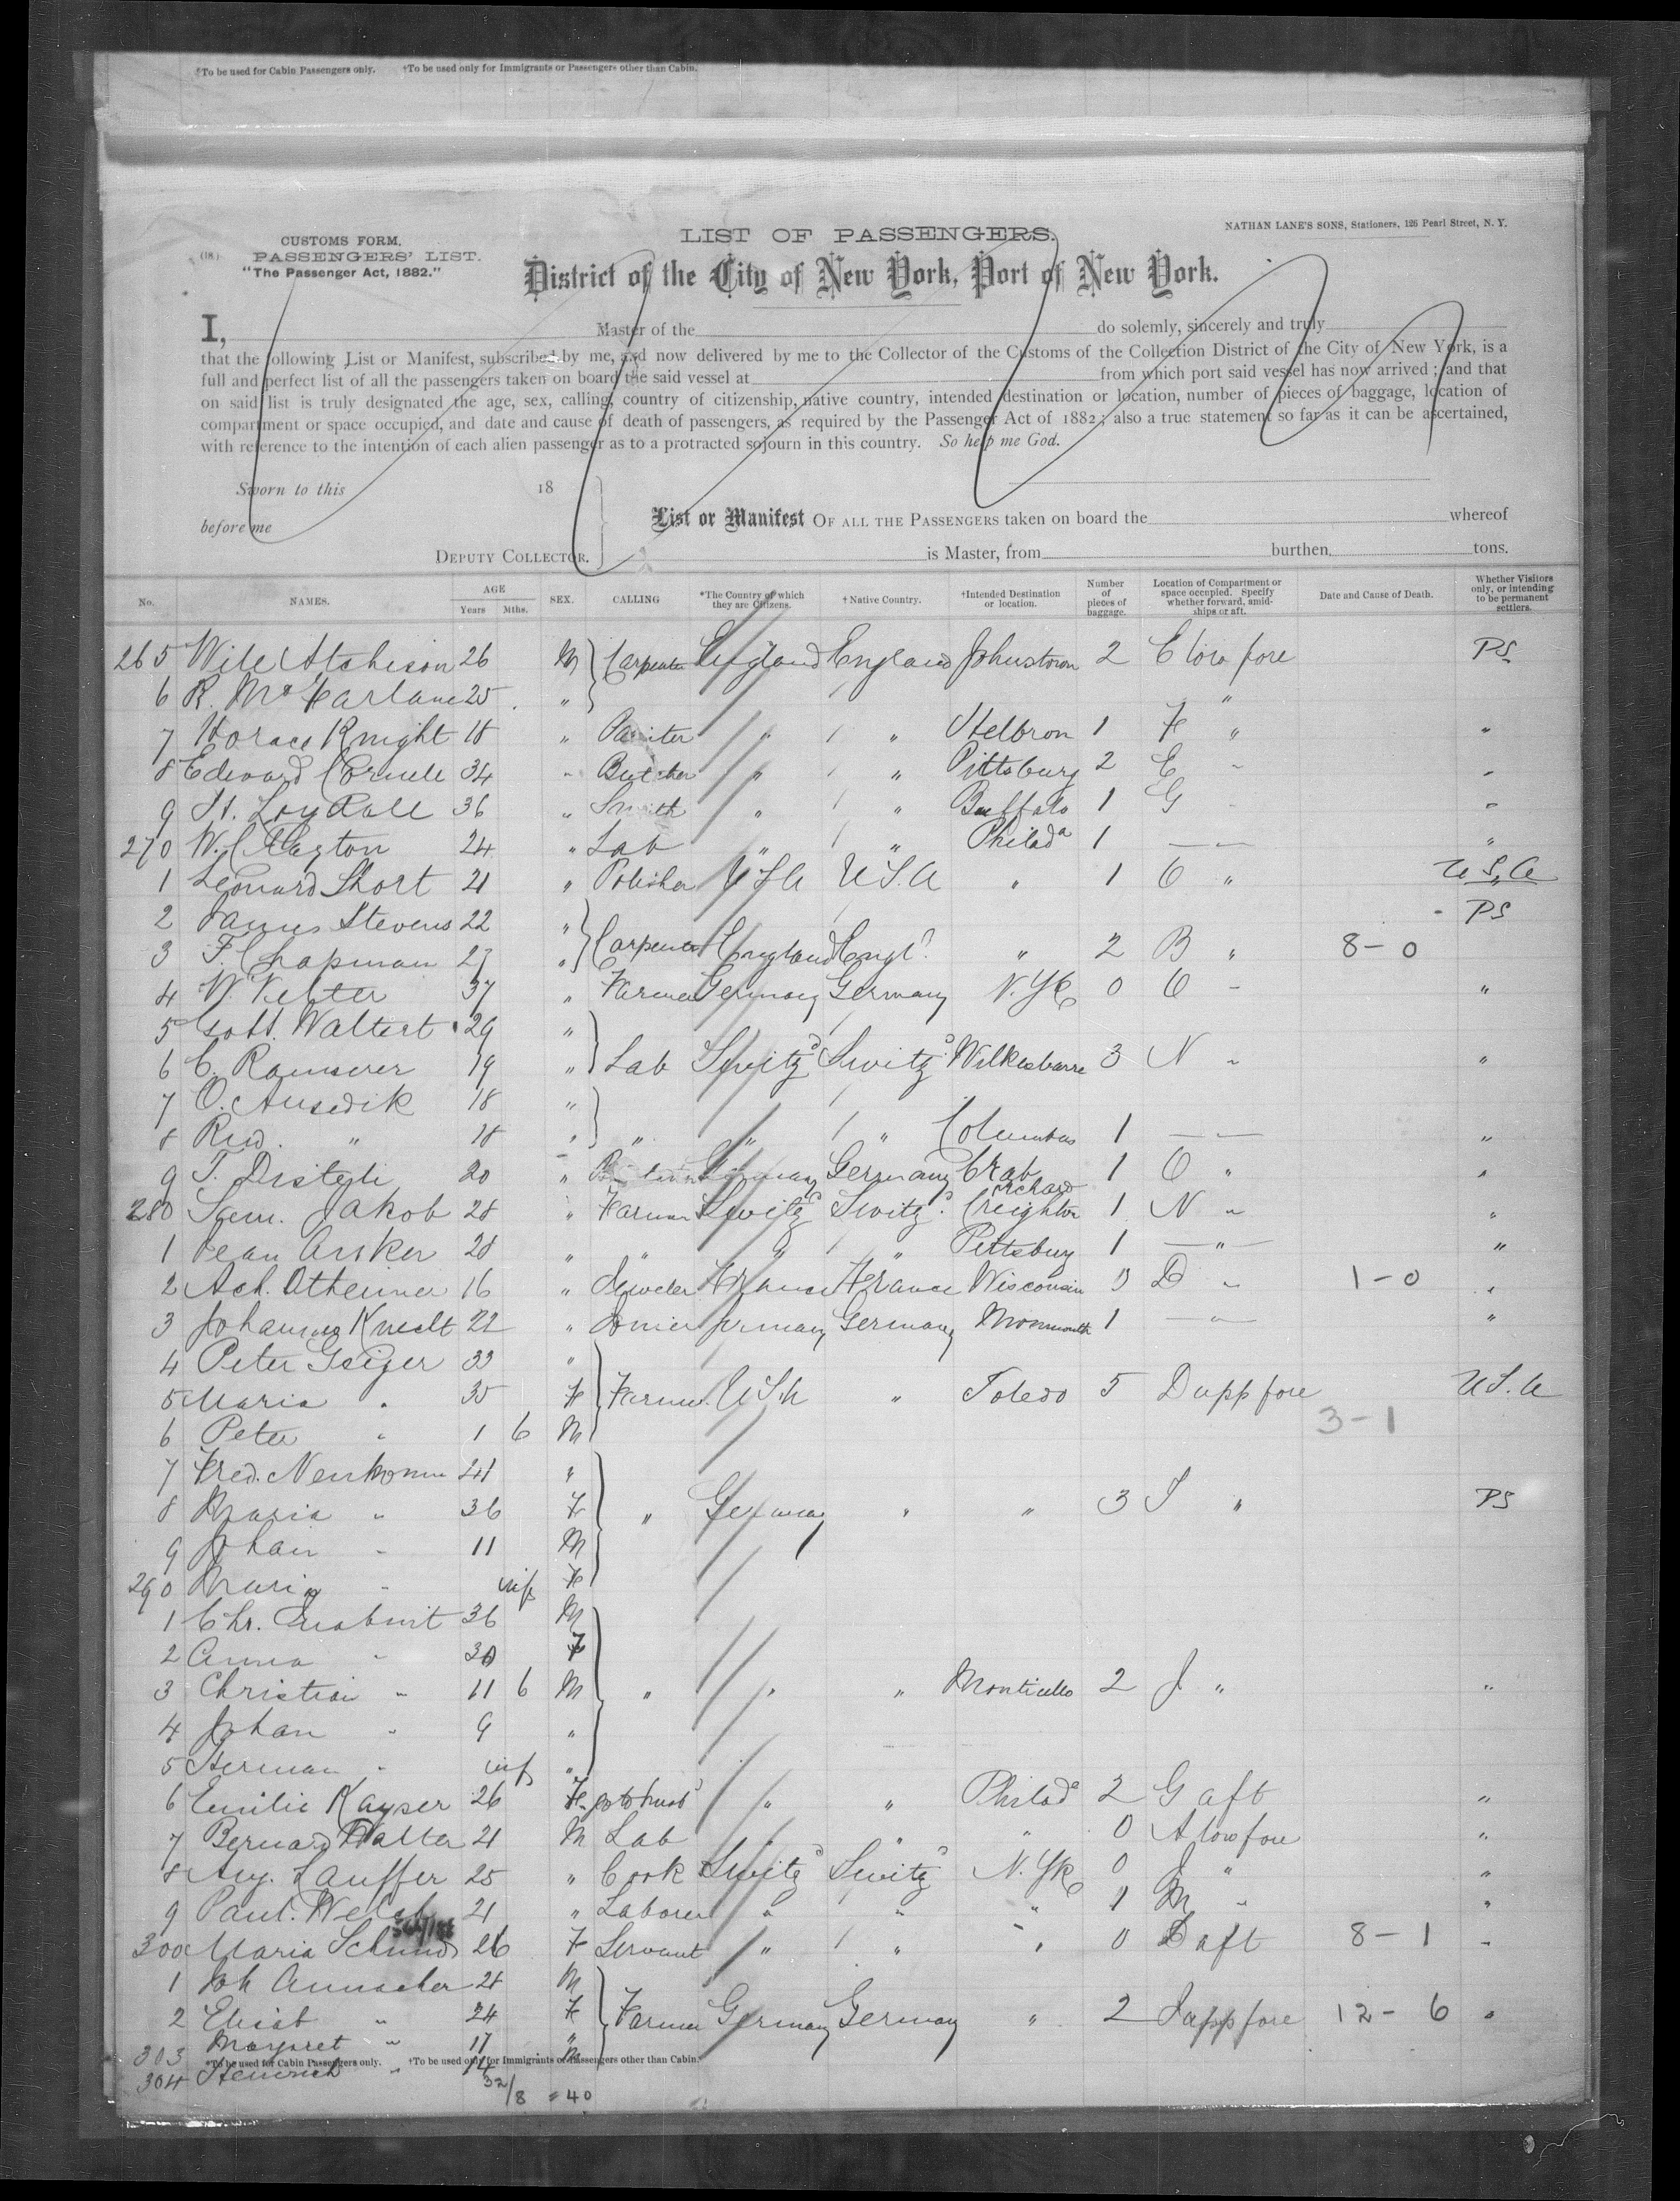 *To be used for Cabin Passengers only. †To be used only for Immigrants or Passengers other than Cabin.
CUSTOMS FORM.
PASSENGERS' LIST.
"The Passenger Act, 1882."
LIST OF PASSENGERS.
NATHAN LANE'S SONS, Stationers, 126 Pearl Street, N. Y.
District of the City of New York, Port of New York.
I, Master of the do solemly, sincerely and truly
that the following List or Manifest, subscribed by me, and now delivered by me to the Collector of the Customs of the Collection District of the City of New York, is a
full and perfect list of all the passengers taken on board the said vessel at from which port said vessel has now arrived; and that
on said list is truly designated the age, sex, calling, country of citizenship, native country, intended destination or location, number of pieces of baggage, location of
compartment or space occupied, and date and cause of death of passengers, as required by the Passenger Act of 1882; also a true statement so far as it can be ascertained,
with reference to the intention of each alien passenger as to a protracted sojourn in this country. So help me God.
Sworn to this 18
before me
DEPUTY COLLECTOR.
List or Manifest OF ALL THE PASSENGERS taken on board the whereof
is Master, from burthen, tons.
No. NAMES. AGE Years Mths. SEX. CALLING *The Country of which they are Citizens. †Native Country. †Intended Destination or location. Number of pieces of baggage. Location of Compartment or space occupied. Specify whether forward, amidships or aft. Date and Cause of Death. Whether Visitors only, or intending to be permanent settlers.
265 Will Atcheson 26 M Carpenter England England Johnstown 2 E low fore PS
6 R. McFarlane 25 " "
7 Horace Knight 18 " Painter " " 1 F " "
8 Edward 34 " Butcher " " Pittsburg 2 E " "
9 36 " Smith " " Buffalo 1 G " "
270 W. Clayton 24 " Lab " " Philada 1 "
1 Leonard Short 21 " Polisher USA U.S.A " 1 O " U.S.A
2 James Stevens 22 " PS
3 F. Chapman 27 " Carpenter England Engld " 2 B " 8-0
4 W. 37 " Farmer Germany Germany N.Yk 0 O " "
5 Gott. Waltert 29 "
6 C. Ramserer 19 " Lab Switzd Switzd Wilkesbarre 3 N " "
7 O. 18 "
8 Rud. " 18 " " " " Columbus 1 "
9 T. Disteli 20 " Germany Crab Orchard 1 O " "
280 Sam. Jakob 28 " Farmer Switzd Switzd Creighton 1 N " "
1 Jean 28 " " " " Pittsburg 1 " "
2 Ach. 16 " Jeweler France France Wisconsin 0 D " 1-0 "
3 Johannes Knecht 22 " Joiner Germany Germany Monmouth 1 " "
4 Peter Geiger 33 "
5 Maria " 35 F Farmer U.S.A " Toledo 5 D upp fore U.S.A
6 Peter " 1 6 M 3-1
7 Fred. 41 "
8 Maria " 36 F " Germany " " 3 I " PS
9 Johan " 11 M
290 Maria " inf F
1 Chr. 36 M
2 Anna " 30 F
3 Christian " 11 6 M " " " Monticello 2 J " "
4 Johan " 9 "
5 Herman " inf "
6 Emilie Kayser 26 F " " Philada 2 G aft "
7 Bernard Walter 21 M Lab " " 0 A low fore "
8 Aug. Lauffer 25 " Cook Switzd Switzd N.Yk 0 J " "
9 Paul. 21 " Laborer " " " 1 M " "
300 Maria Schmid 26 F Servant " " " 0 D aft 8-1 "
1 Joh 28 M
2 Elisab " 24 F Farmer Germany Germany " 2 J upp fore 12-6 "
303 Margaret " 17 "
*To be used for Cabin Passengers only. †To be used only for Immigrants or Passengers other than Cabin.
304 Heinrich " 14 M
32/8 = 40